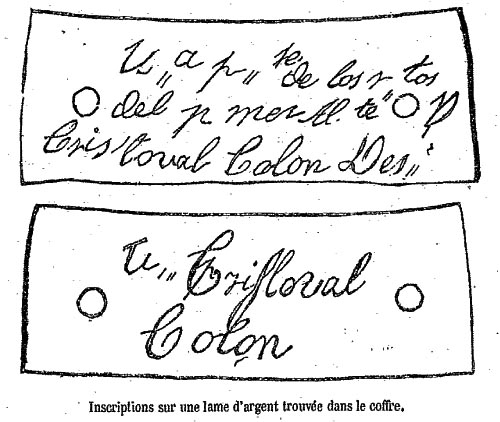 U,, a p,, te. de los r tos
del p mer. Al. te" D
Cristoval Colon Des,,r
U,, Cristoval
Colon
Inscriptions sur une lame d'argent trouvée dans le coffre.